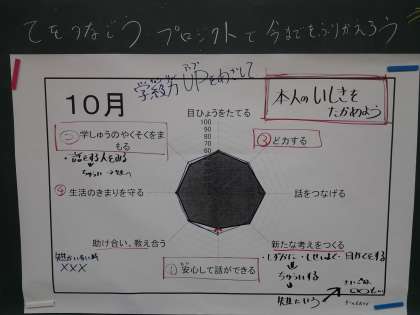 てをつなごう プロジェクトで 今までをふりかえろう
学級力UPをめざして
10月
本人のいしきを
たかめよう
目ひょうをたてる
100
90
80
70
60
50
② 学しゅうのやくそくをま
もる
・話をする人を見る
③ ど力する
④ 生活のきまりを守る
話をつなげる
助け合い、教え合う
新たな考えをつくる
① 安心して話ができる
×××
ちゅういする